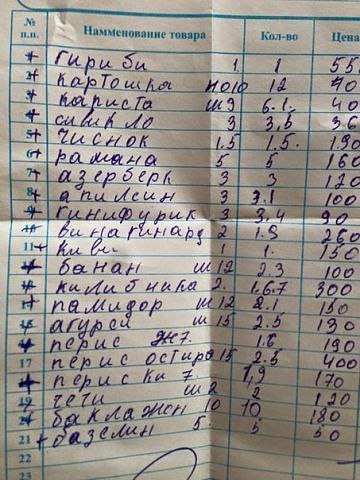 № п.п. Намменование товара Кол-во Цена
1 гириби 1 1 55
2 картошка 12 40
3 каписта шэ 6.1. 40
4 3 3,5 36
5 чиснок 1,5 1.5. 190
6 рамана 5 5 160
7 азерберг 3 3 120
8 апилсин 3 3.1 100
9 гинифурик 3 3,4 90
10 винагинард 2 1.8 260
11 киви 1 1. 150
банан ш 12 2.3 100
килибника 2. 1.6.7 300
памидор ш 12 2.1 150
агурси ш 15 2.5 130
перис ж7. 1.8 190
17 перис остиро 15 2.5 400
периски 7. 1,9 170
19 чети ш2 2 120
20 баклажен 10 10 180
21 базелин 5. 5 50
22
23